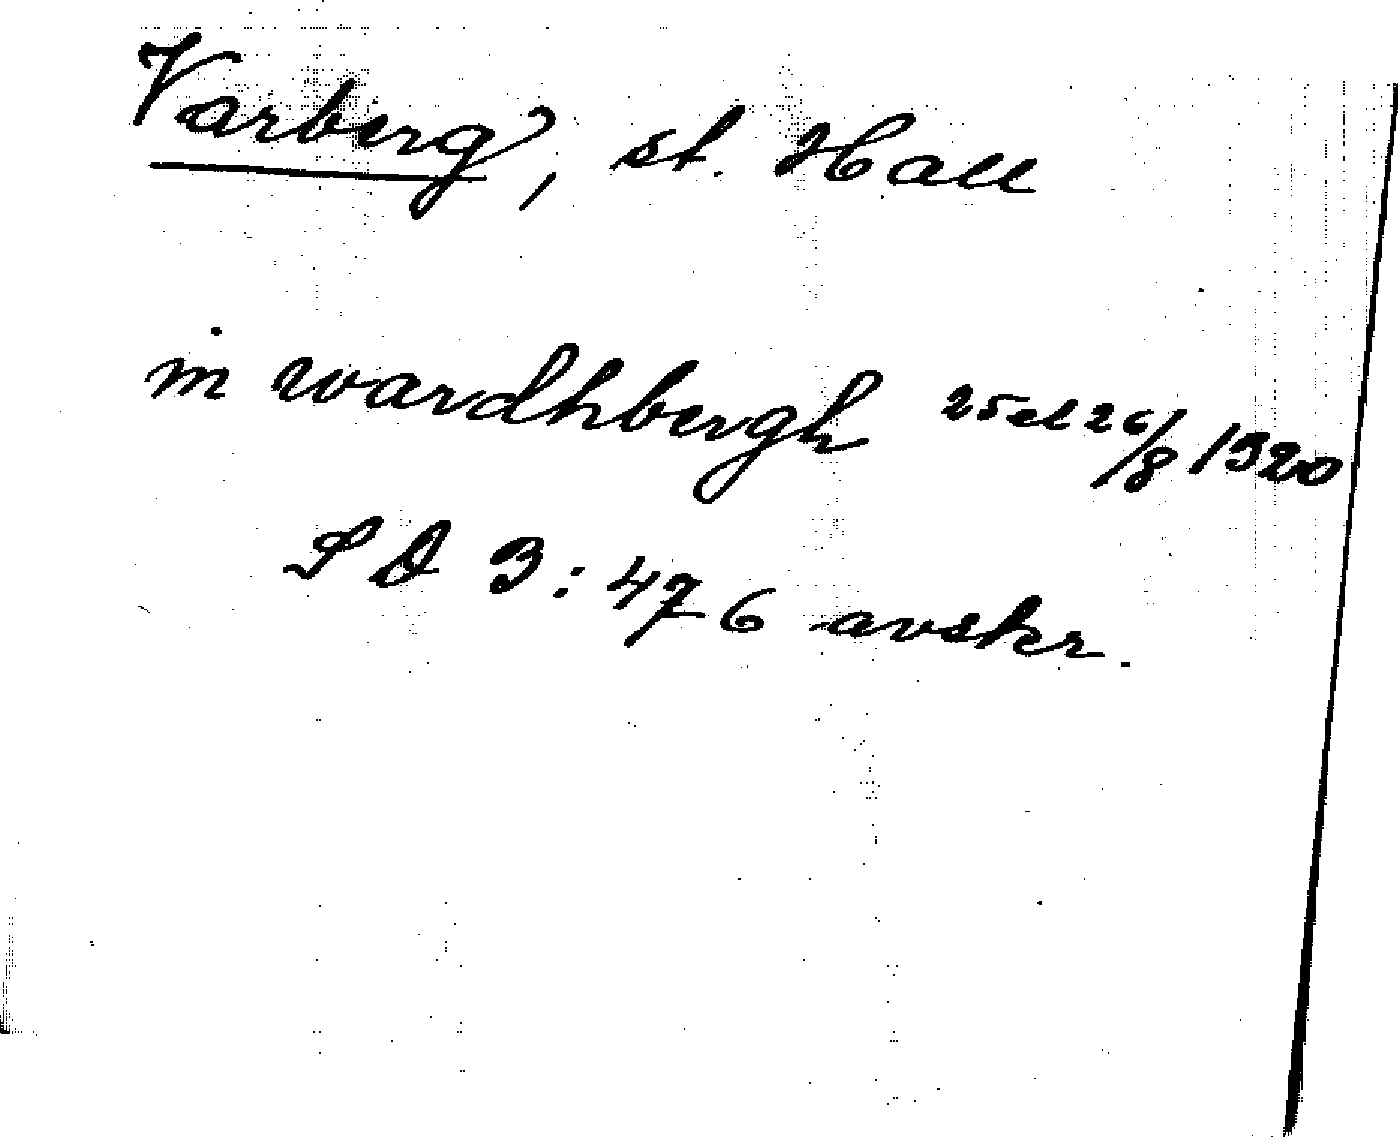 Varberg, st. Hall
in wardhbergh 25 el 26/8 1320
SD 3:476 avskr.